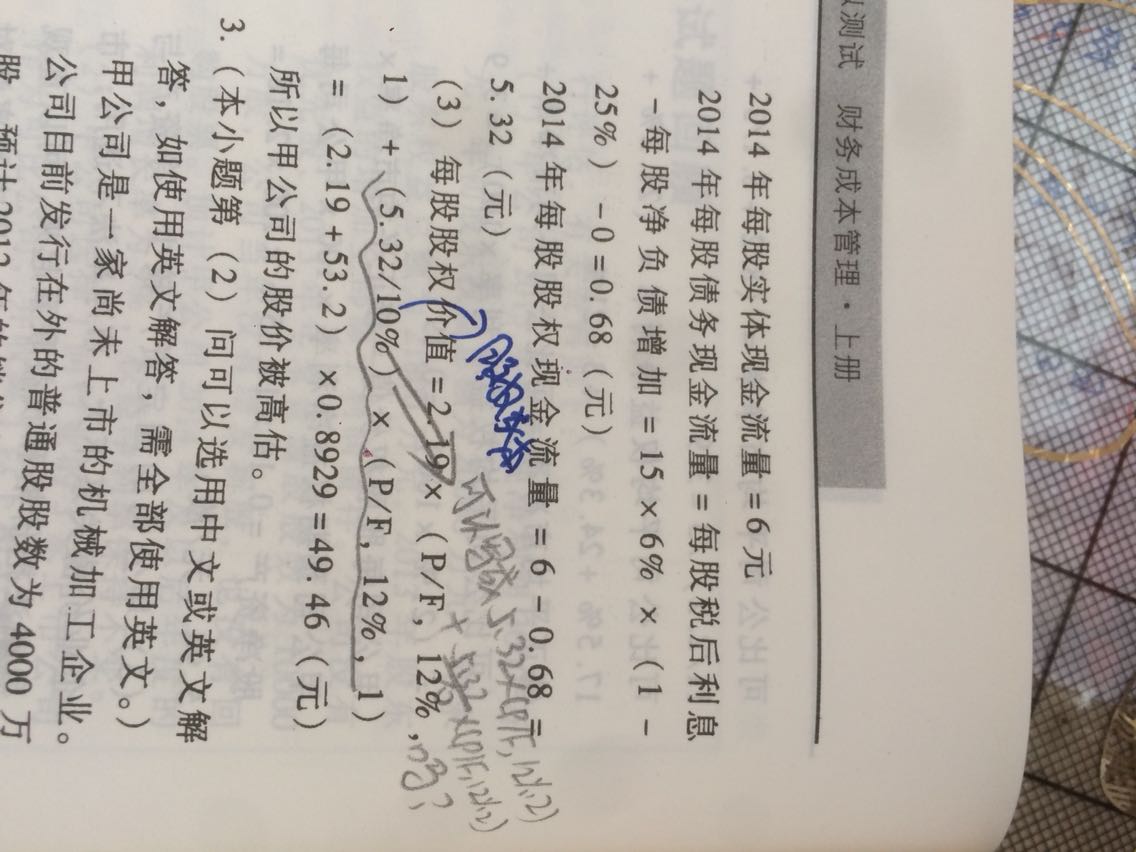 测试 财务成本管理·上册
2014年每股实体现金流量=6元
2014年每股债务现金流量=每股税后利息
-每股净负债增加=15×6%×(1-
25%)-0=0.68(元)
2014年每股股权现金流量=6-0.68=
5.32(元)
可以写成 5.32×(P/F,12%,2)
+ ×(P/F,12%,2)
吗?
(3)每股股权价值=2.19×(P/F,12%,
1)+(5.32/10%)×(P/F,12%,1)
=(2.19+53.2)×0.8929=49.46(元)
所以甲公司的股价被高估。
3.(本小题第(2)问可以选用中文或英文解
答,如使用英文解答,需全部使用英文。)
甲公司是一家尚未上市的机械加工企业。
公司目前发行在外的普通股股数为4000万
股,预计2013年的销售